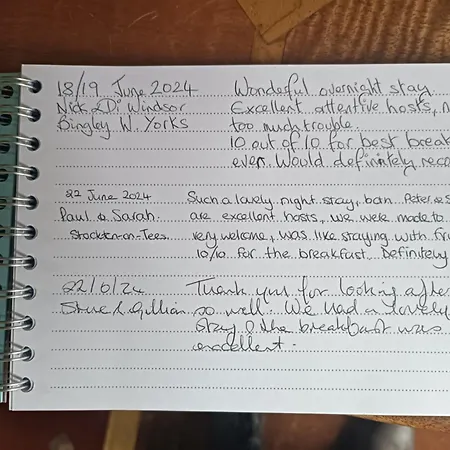 18/19 June 2024 Wonderful overnight stay.
Nick & Di Windsor Excellent attentive hosts, n
Bingley W. Yorks too much trouble.
10 out of 10 for best break
ever. Would definitely reco
22 June 2024 Such a lovely night stay, Peter & S
Paul & Sarah. are excellent hosts, we were made to
Stockton-on-Tees very welcome, was like staying with fri
10/10 for the breakfast. Definitely
22/6/24 Thank you for looking after
Steve & Gillian so well. We had a lovely
stay & the breakfast was
excellent.